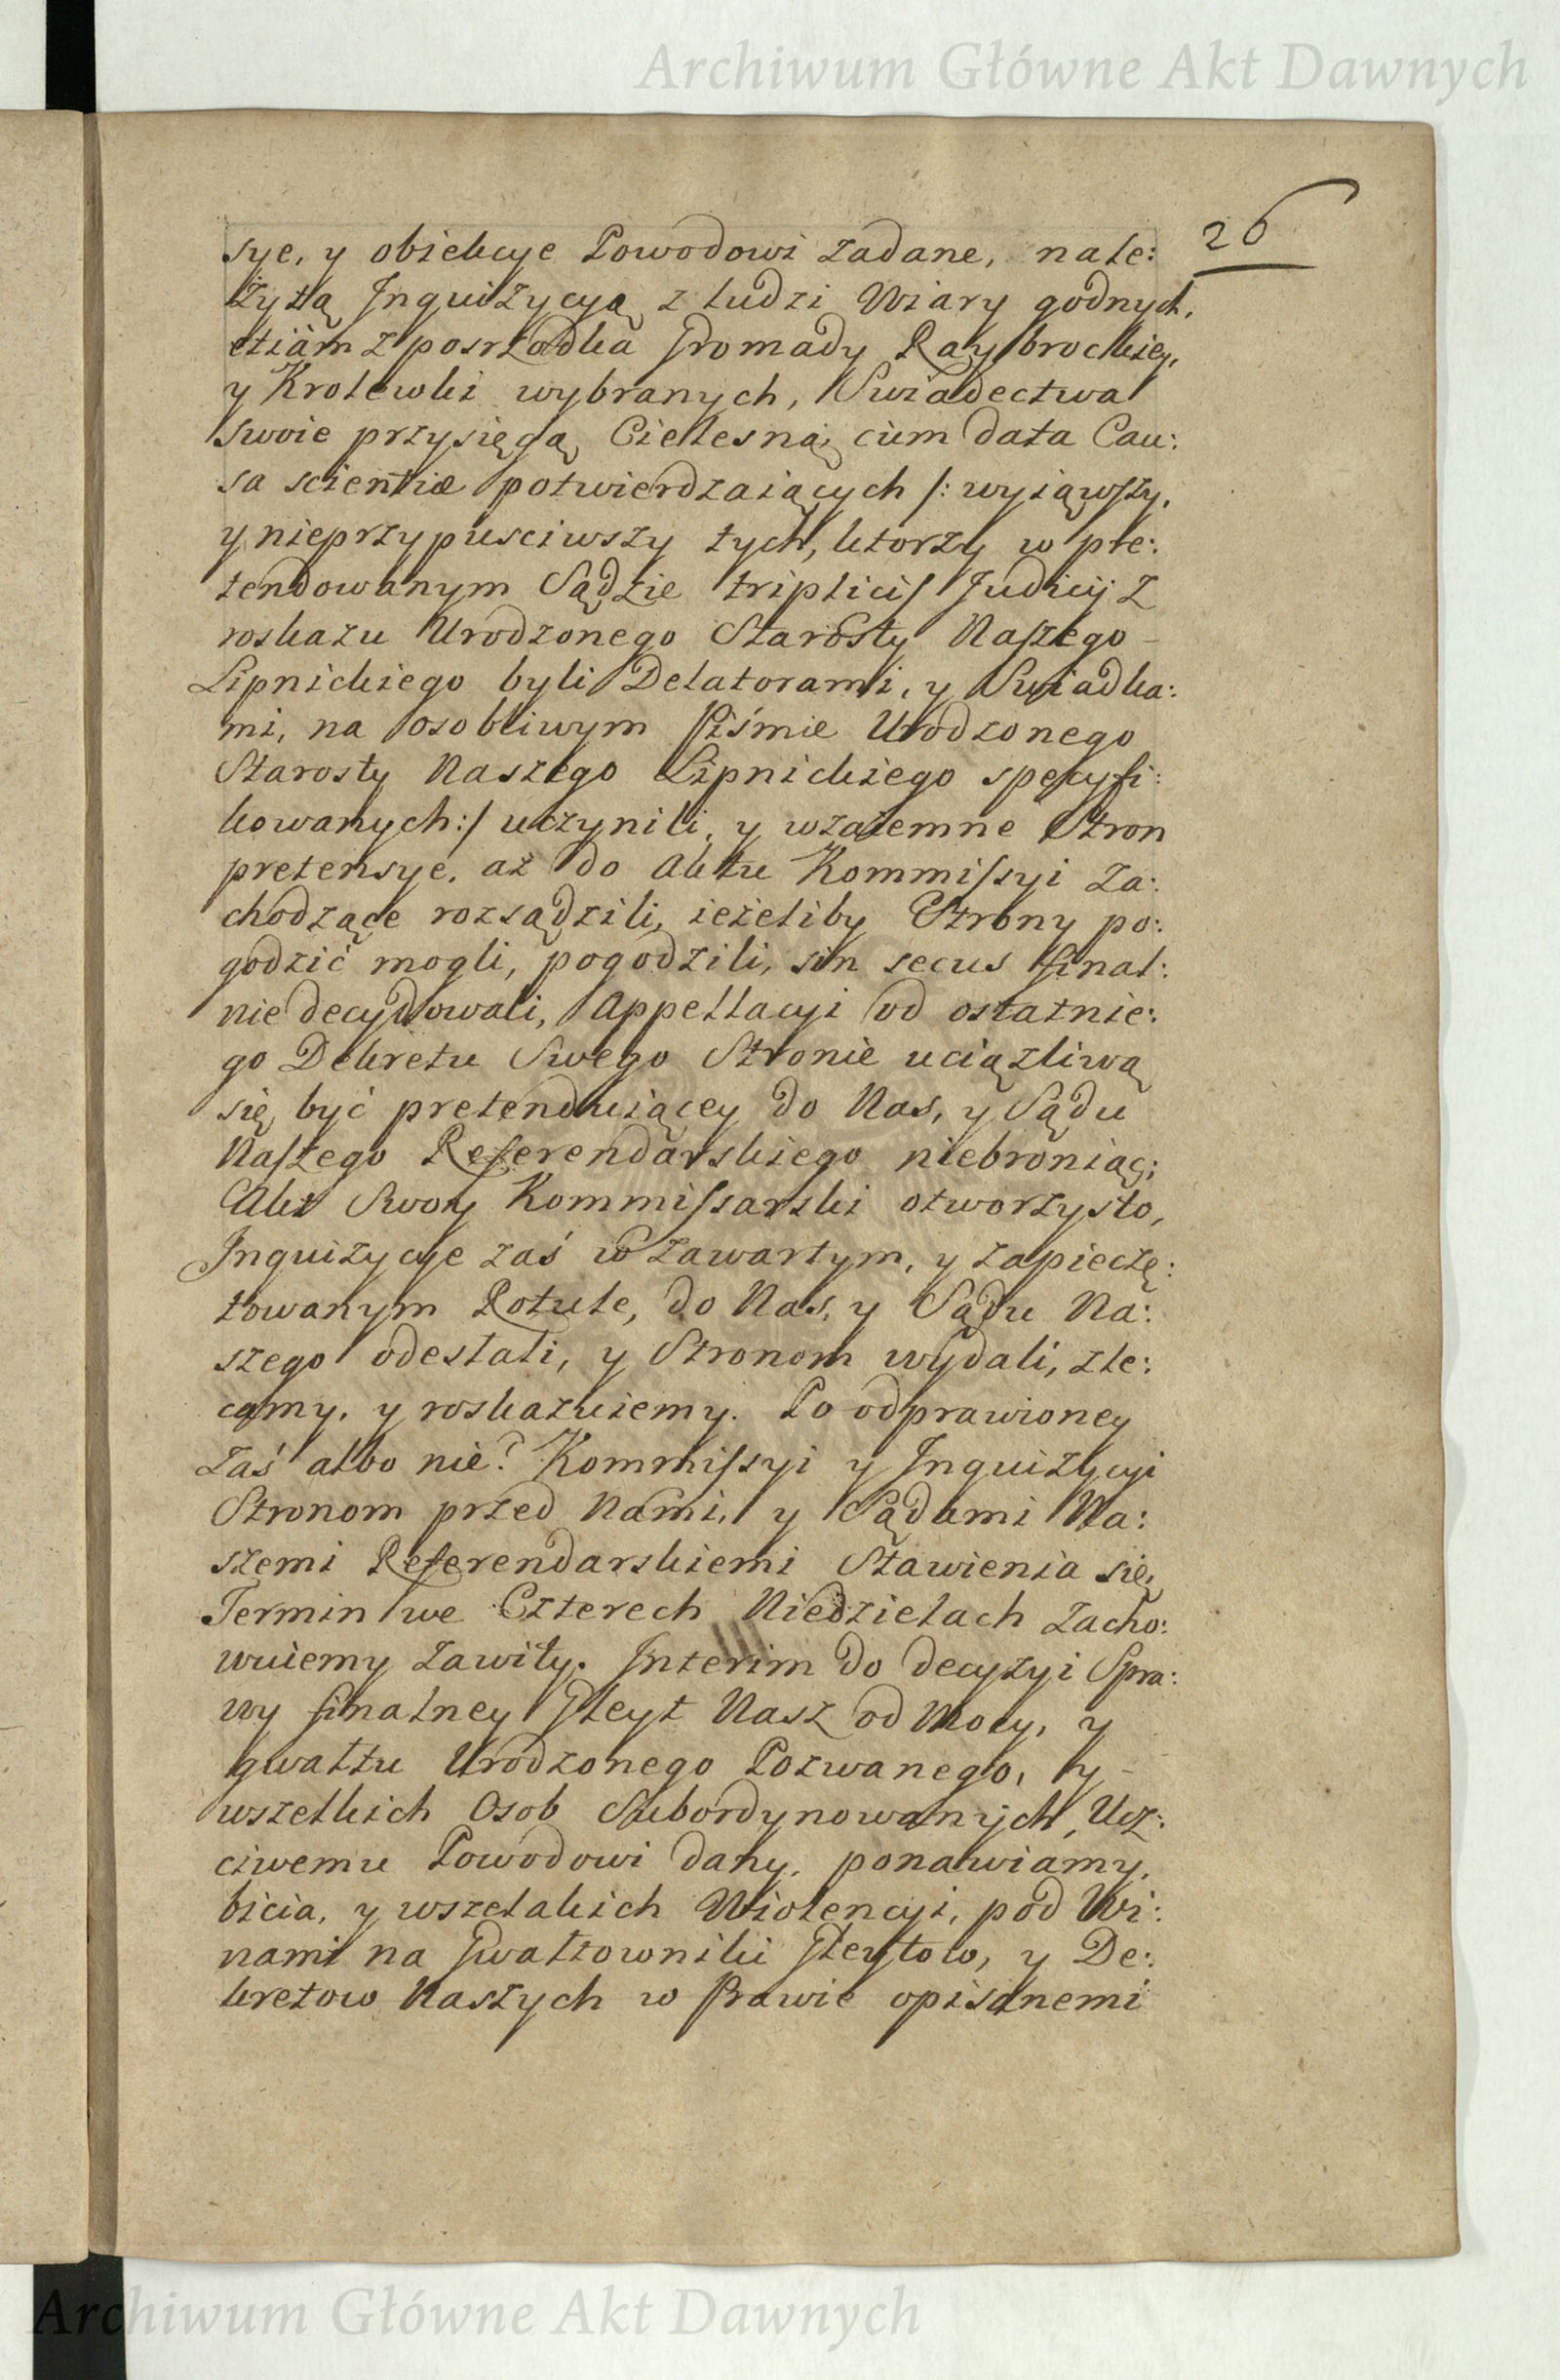 Archiwum Główne Akt Dawnych
26
sye, y obiekcye Powodowi zadane, nale:
żytą Inquizycyą z ludzi Wiary godnych,
etiàm z posrzodka Gromady Raybrockiey,
y Krolewki wybranych, Swiadectwa
swoie przysięgą Cielesną, cùm data Cau:
sa scientiæ potwierdzaiących /: wyiąwszy,
y nieprzypusciwszy tych, ktorzy w pre:
tendowanym Sądzie triplicis Judicij z
roskazu Urodzonego Starosty Naszego –
Lipnickiego byli Delatorami, y Swiadka:
mi, na osobliwym Piśmie Urodzonego
Starosty Naszego Lipnickiego specyfi:
kowanych:/ uczynili, y wzaiemne Stron
pretensye, aż do Aktu Kommissyi za:
chodzące rozsądzili, ieżeliby Strony po:
godzić mogli, pogodzili, sin secus final:
nie decydowali, Appellacyi od ostatnie:
go Dekretu Swego Stronie uciązliwą
się być pretenduiącey do Nas, y Sądu
Naszego Referendarskiego niebroniąc;
Akt Swoy Kommissarski otworzysto,
Inquizycye zaś w zawartym, y zapieczę:
towanym Rotule, do Nas, y Sądu Na:
szego odesłali, y Stronom wydali, zle:
camy, y roskazuiemy. Po odprawioney
zaś albo nie? Kommissyi y Inquizycyi
Stronom przed Nami, y Sądami Na:
szemi Referendarskiemi Stawienia się,
Termin we Czterech Niedzielach zacho:
wuiemy zawity. Interim do decyzyi Spra:
wy finalney Gleyt Nasz od Mocy, y
gwałtu Urodzonego Pozwanego, y –
wszelkich Osob Subordynowanych, Ucz:
ciwemu Powodowi dany, ponawiamy,
bicia, y wszelakich Wiolencyi, pod Wi:
nami na Gwałtowniki Gleytow, y De:
kretow Naszych w Prawie opisanemi
Archiwum Główne Akt Dawnych